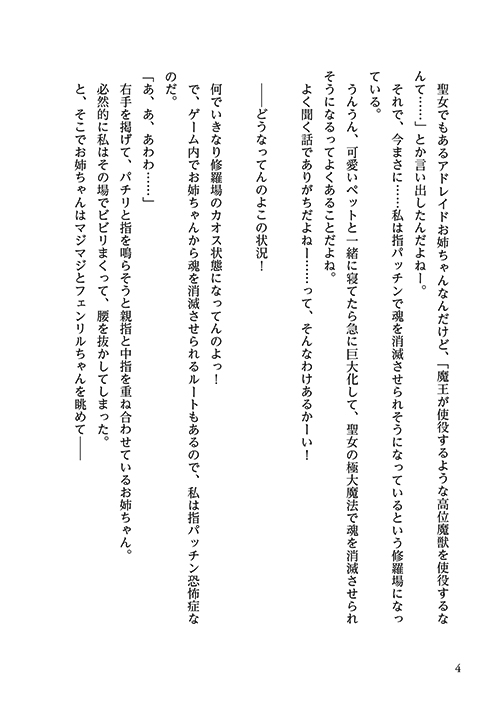 聖女でもあるアドレイドお姉ちゃんなんだけど、「魔王が使役するような高位魔獣を使役するな
んて……」とか言い出したんだよねー。
それで、今まさに……私は指パッチンで魂を消滅させられそうになっているという修羅場になっ
ている。
うんうん、可愛いペットと一緒に寝てたら急に巨大化して、聖女の極大魔法で魂を消滅させられ
そうになるってよくあることだよね。
よく聞く話でありがちだよねー……って、そんなわけあるかーい！
――どうなってんのよこの状況！
何でいきなり修羅場のカオス状態になってんのよっ！
で、ゲーム内でお姉ちゃんから魂を消滅させられるルートもあるので、私は指パッチン恐怖症な
のだ。
「あ、あ、あわわ……」
右手を掲げて、パチリと指を鳴らそうと親指と中指を重ね合わせているお姉ちゃん。
必然的に私はその場でビビりまくって、腰を抜かしてしまった。
と、そこでお姉ちゃんはマジマジとフェンリルちゃんを眺めて――
4